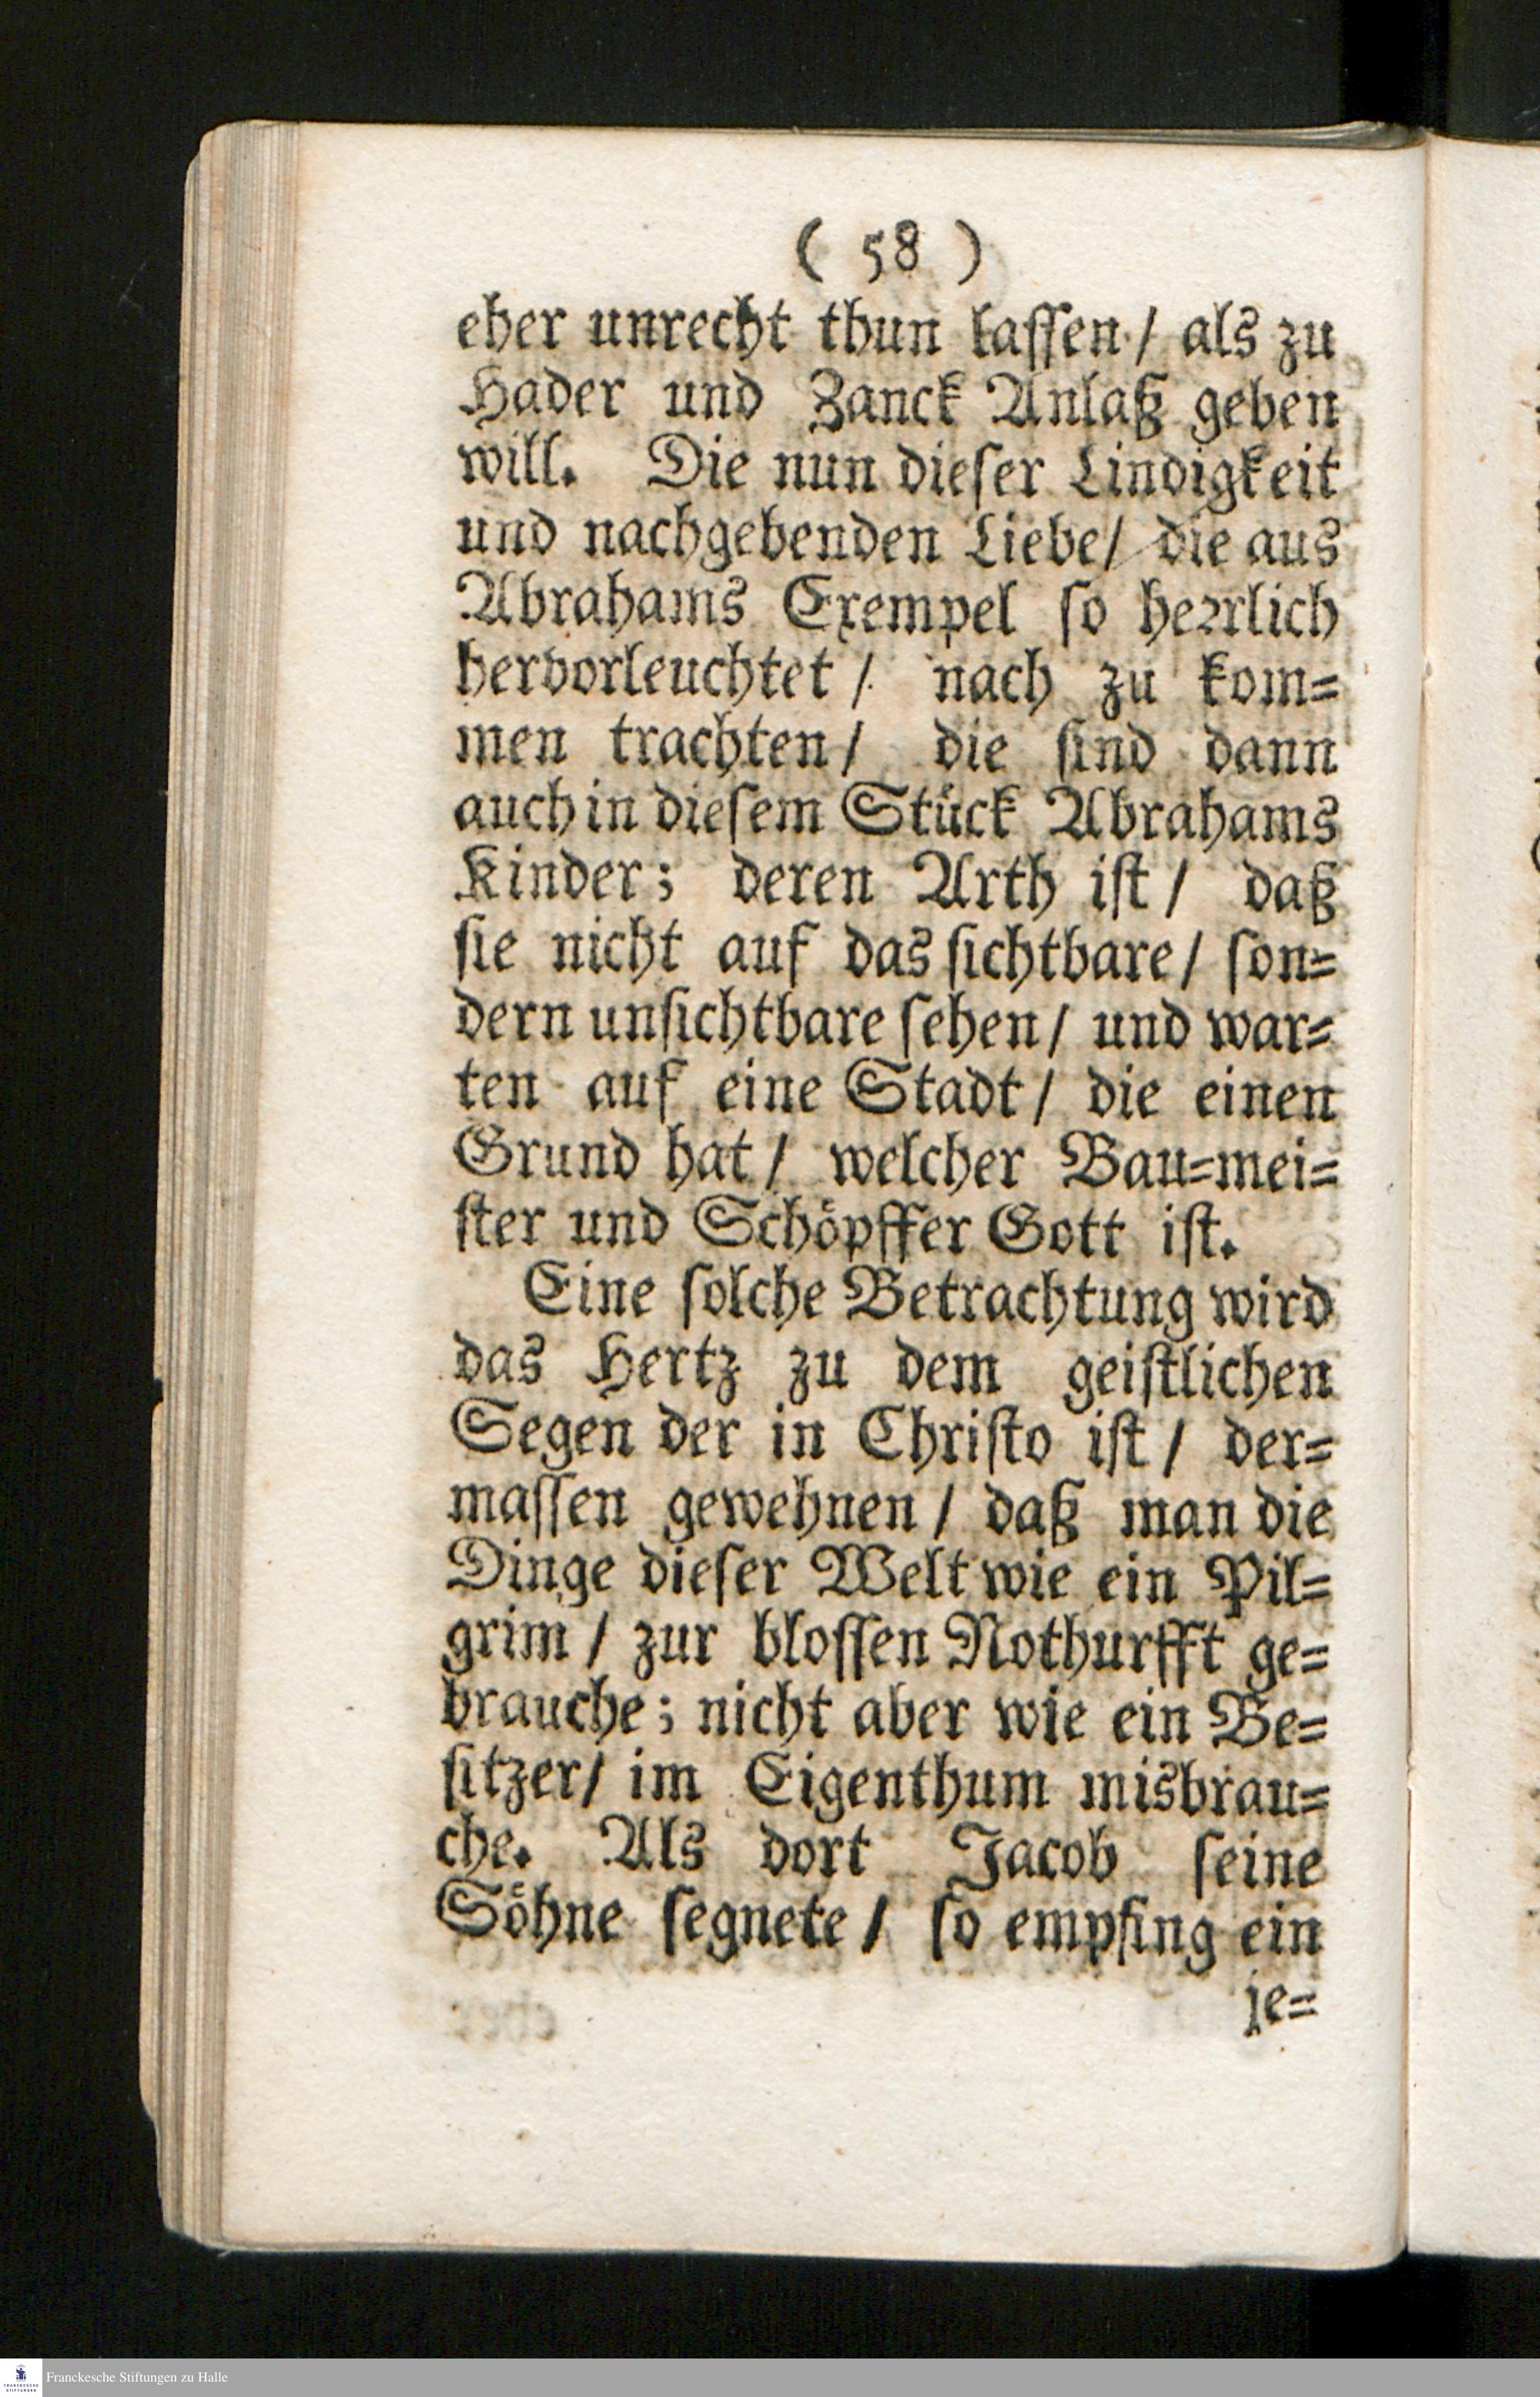 ( 58 )
eher unrecht thun laſſen / als zu
Hader und Zanck Anlaß geben
will. Die nun dieſer Lindigkeit
und nachgebenden Liebe / die aus
Abrahams Exempel ſo heꝛrlich
hervorleuchtet / nach zu kom=
men trachten / die ſind dann
auch in dieſem Stück Abrahams
Kinder; deren Arth iſt / daß
ſie nicht auf das ſichtbare / ſon=
dern unſichtbare ſehen / und war=
ten auf eine Stadt / die einen
Grund hat / welcher Bau=mei=
ſter und Schöpffer Gott iſt.
Eine ſolche Betrachtung wird
das Hertz zu dem geiſtlichen
Segen der in Chriſto iſt / der=
maſſen gewehnen / daß man die
Dinge dieſer Welt wie ein Pil=
grim / zur bloſſen Nothurfft ge=
brauche; nicht aber wie ein Be=
ſitzer / im Eigenthum misbrau=
che. Als dort Jacob ſeine
Söhne ſegnete / ſo empfing ein
je=
Franckesche Stiftungen zu Halle
FRANCKESCHE
STIFTUNGEN